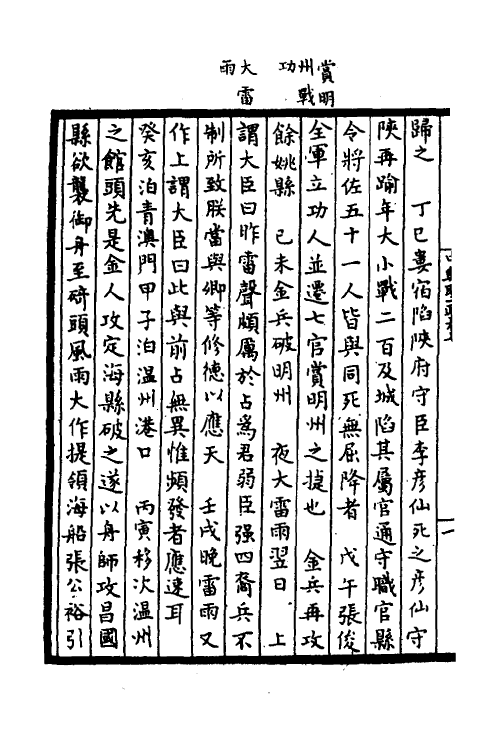 賞明
州戰
功
大雷
雨
歸之　丁巳婁宿陷陝府守臣李彦仙死之彦仙守
陝再踰年大小戰二百及城陷其屬官通守職官縣
令將佐五十一人皆與同死無屈降者　戊午張俊
全軍立功人並遷七官賞明州之捷也　金兵再攻
餘姚縣　己未金兵破明州　夜大雷雨翌日　上
謂大臣曰昨雷聲頗厲於占爲君弱臣强四裔兵不
制所致朕當與卿等修德以應天　壬戌晚雷雨又
作上謂大臣曰此與前占無異惟頻發者應速耳
癸亥泊青澳門甲子泊温州港口　丙寅移次温州
之館頭先是金人攻定海縣破之遂以舟師攻昌國
縣欲襲御舟至碕頭風雨大作提領海船張公裕引